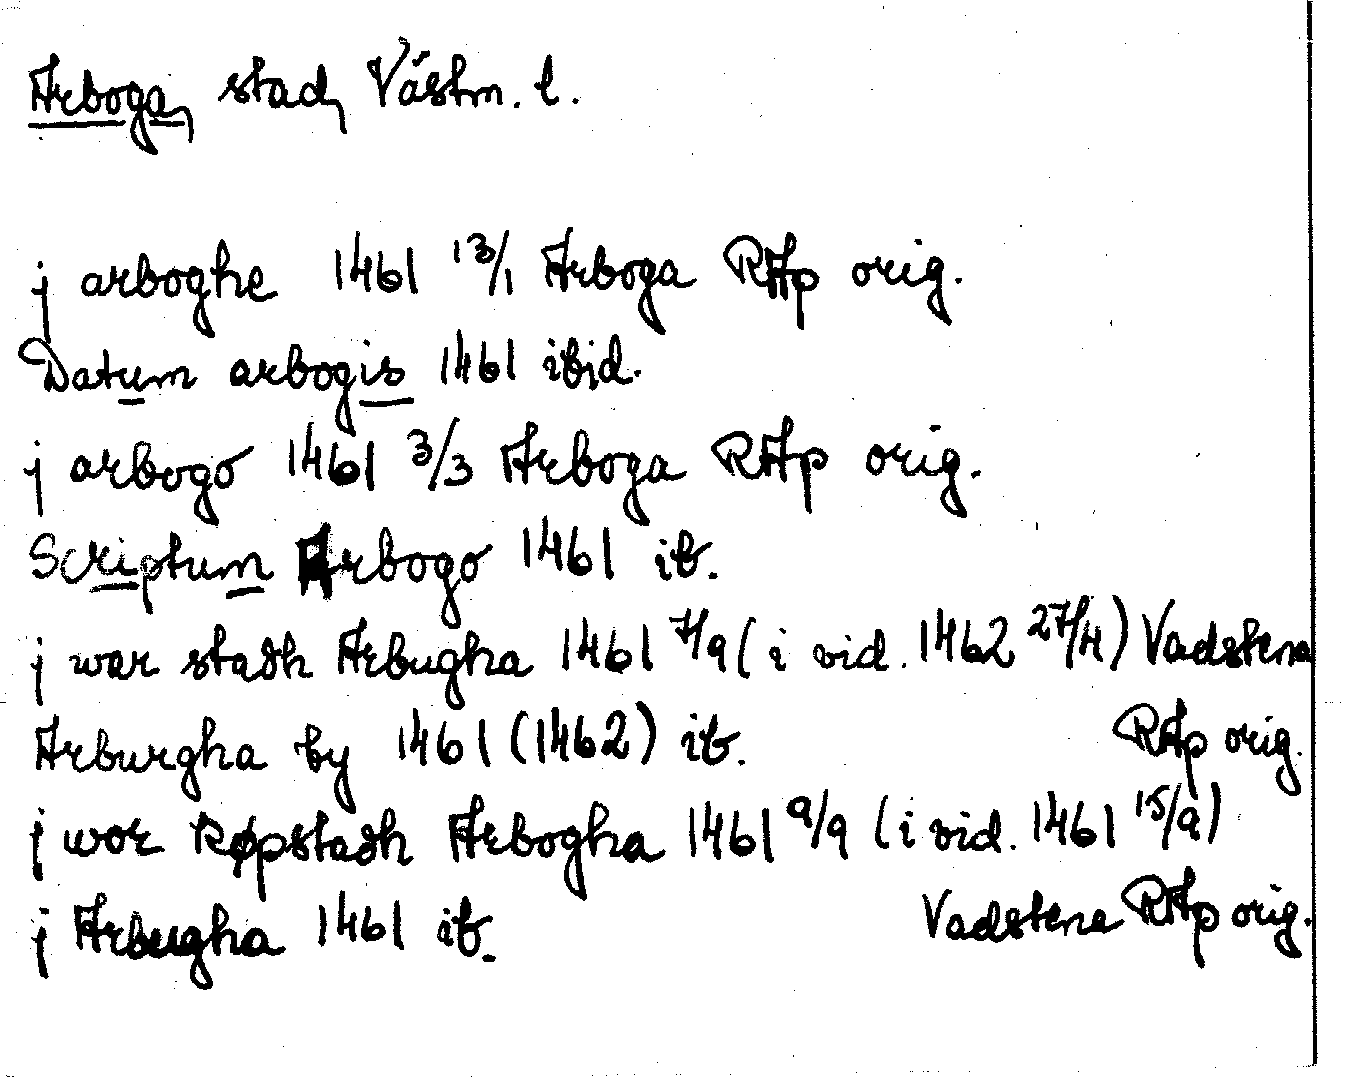 Arboga, stad, Västm. l.
j arboghe 1461 13/1 Arboga RAp orig.
Datum arbogis 1461 ibid.
j arbogo 1461 3/3 Arboga RAp orig.
Scriptum Arbogo 1461 ib.
j war stadh Arbugha 1461 7/9 (i vid. 1462 27/4) Vadstena
Arburgha by 1461 (1462) ib. RAp orig.
j wor køpstadh Arbogha 1461 9/9 (i vid. 1461 15/9)
j Arbugha 1461 ib. Vadstena RAp orig.